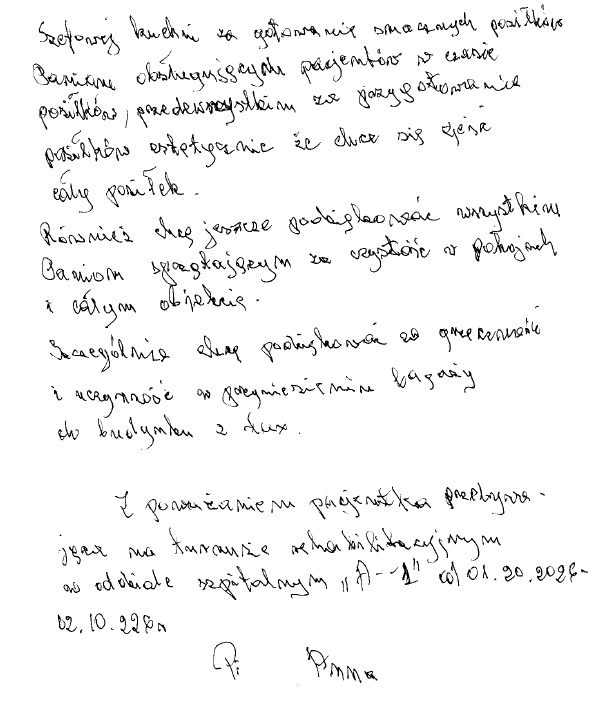 Szefowej kuchni za gotowanie smacznych posiłków
Paniom obsługującym pacjentów w czasie
posiłków, przedewszystkim za przygotowanie
posiłków estetycznie że chce się zjeść
cały posiłek.
Również chcę jeszcze podziękować wszystkim
Paniom sprzątającym za czystość w pokojach
i całym obiekcie.
Szczególnie chcę podziękować za grzeczność
i uczynność w przyniesieniu bagaży
do budynku z aux.
Z poważaniem pacjentka przebywa-
jąca na turnusie rehabilitacyjnym
w oddziale szpitalnym „A--1" od 01.20.2026-
02.10.226r
P. Anna